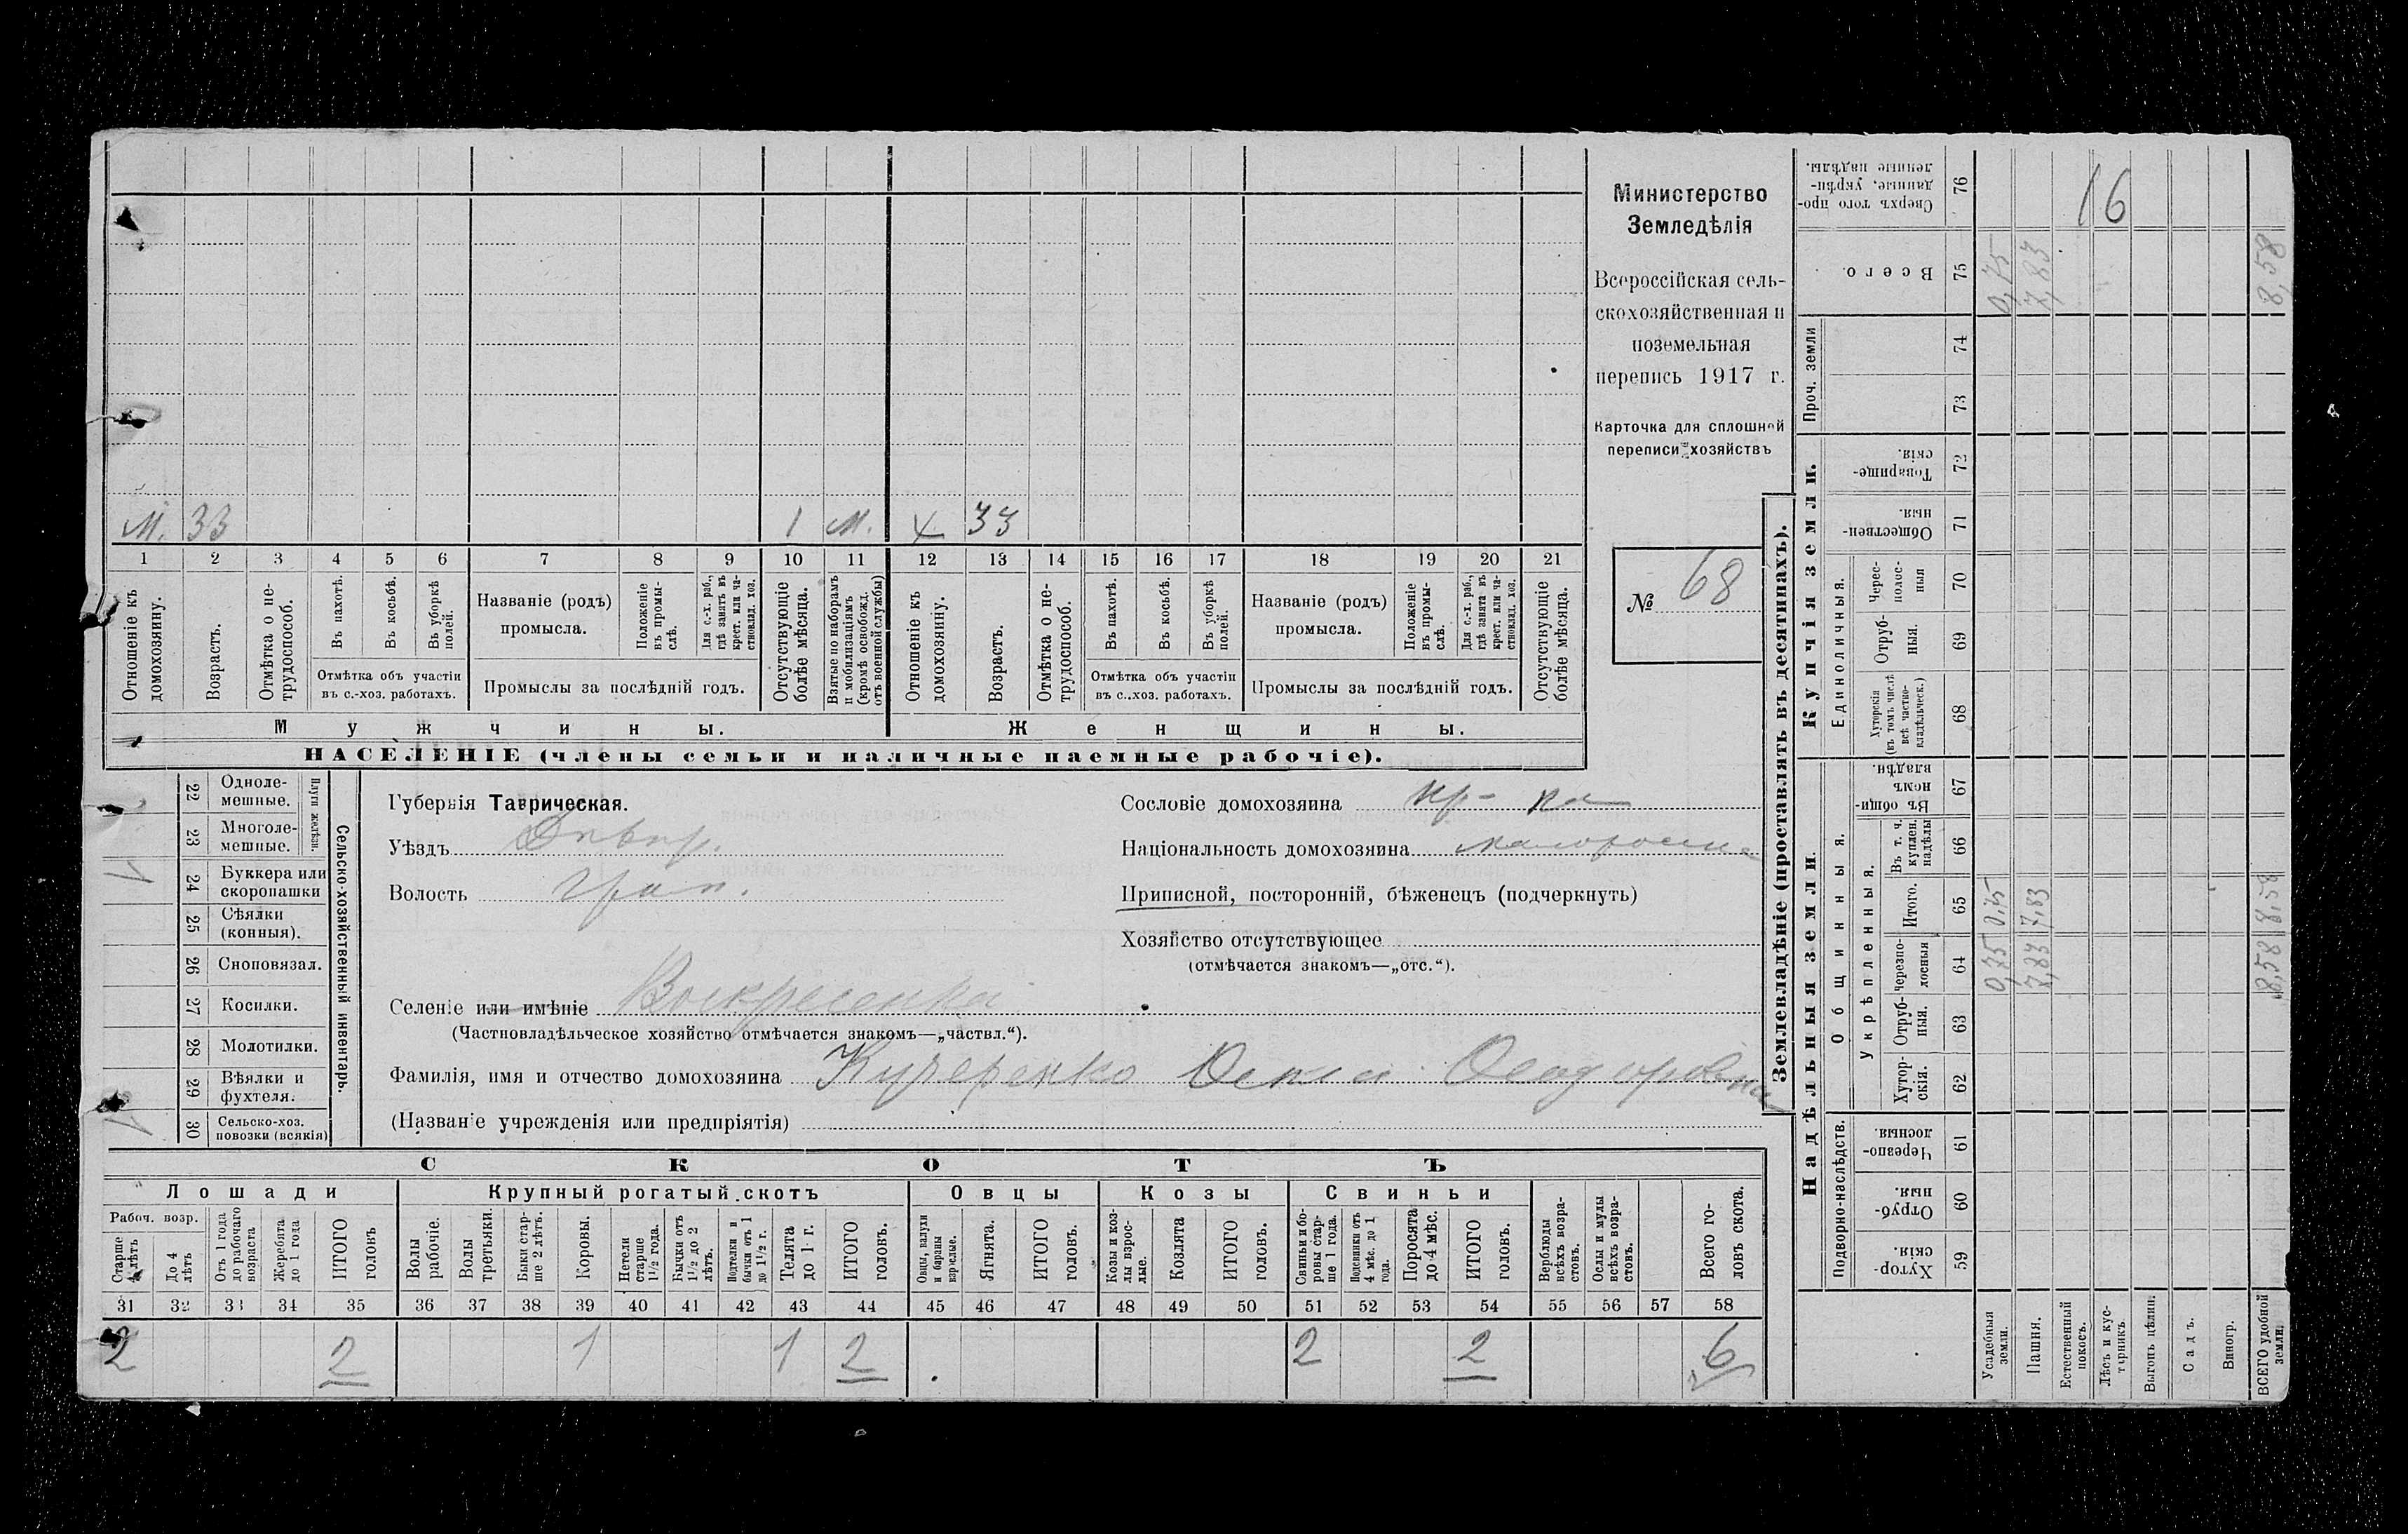 Министерство
Земледѣлія
Всероссійская сель-
скохозяйственная и
поземельная
перепись 1917 г.
Карточка для сплошной
переписи хозяйствъ
№ 68
М. 33 1 М. х 33
1 2 3 4 5 6 7 8 9 10 11 12 13 14 15 16 17 18 19 20 21
Отношеніе къ домохозяину.
Возрастъ.
Отмѣтка о не-трудоспособ.
Въ пахотѣ.
Въ косьбѣ.
Въ уборкѣ полей.
Отмѣтка объ участіи
въ с.-хоз. работахъ.
Названіе (родъ)
промысла.
Положеніе въ промы-слѣ.
Для с.-х. раб., гдѣ занятъ въ крест. или ча-стновлад. хоз.
Промыслы за послѣдній годъ.
Отсутствующіе болѣе мѣсяца.
Взятые по наборамъ и мобилизаціямъ (кромѣ освобожд. отъ военной службы)
Отношеніе къ домохозяину.
Возрастъ.
Отмѣтка о не-трудоспособ.
Въ пахотѣ.
Въ косьбѣ.
Въ уборкѣ полей.
Отмѣтка объ участіи
въ с.-хоз. работахъ.
Названіе (родъ)
промысла.
Положеніе въ промы-слѣ.
Для с.-х. раб., гдѣ занята въ крест. или ча-стновлад. хоз.
Промыслы за послѣдній годъ.
Отсутствующіе болѣе мѣсяца.
Мужчины. Женщины.
НАСЕЛЕНІЕ (члены семьи и наличные наемные рабочіе).
Сельско-хозяйственный инвентарь.
Плуги желѣзн.
22 Одноле-мешные.
23 Многоле-мешные.
24 Буккера или скоропашки
25 Сѣялки (конныя).
26 Сноповязал.
27 Косилки.
28 Молотилки.
29 Вѣялки и фухтеля.
30 Сельско-хоз. повозки (всякія)
Губернія Таврическая.
Уѣздъ Днѣпр.
Волость
Селеніе или имѣніе Воскресенка
(Частновладѣльческое хозяйство отмѣчается знакомъ—„частвл.“).
Фамилія, имя и отчество домохозяина Кучеренко
(Названіе учрежденія или предпріятія)
Сословіе домохозяина кр-ка
Національность домохозяина
Приписной, посторонній, бѣженецъ (подчеркнуть)
Хозяйство отсутствующее
(отмѣчается знакомъ—„отс.“).
СКОТЪ
Лошади Крупный рогатый скотъ Овцы Козы Свиньи
Рабоч. возр.
Старше 4 лѣтъ
До 4 лѣтъ
Отъ 1 года до рабочаго возраста
Жеребята до 1 года
ИТОГО головъ
Волы рабочіе.
Волы третьяки.
Быки стар-ше 2 лѣтъ.
Коровы.
Нетели старше 1½ года.
Бычки отъ 1½ до 2 лѣтъ.
Подтелки и бычки отъ 1 до 1½ г.
Телята до 1 г.
ИТОГО головъ.
Овцы, валухи и бараны взрослые.
Ягнята.
ИТОГО головъ.
Козы и коз-лы взрос-лые.
Козлята
ИТОГО головъ.
Свиньи и бо-ровы стар-ше 1 года.
Подсвинки отъ 4 мѣс. до 1 года.
Поросята до 4 мѣс.
ИТОГО головъ.
Верблюды всѣхъ возра-стовъ.
Ослы и мулы всѣхъ возра-стовъ.
Всего го-ловъ скота.
31 32 33 34 35 36 37 38 39 40 41 42 43 44 45 46 47 48 49 50 51 52 53 54 55 56 57 58
2 2 1 1 2 2 2 6
Землевладѣніе (проставлять въ десятинахъ).
Надѣльныя земли. Купчія земли.
Подворно-наслѣдств.
Общинныя.
Укрѣпленныя.
Единоличныя.
Проч. земли
Хутор-скія. 59
Отруб-ныя. 60
Черезпо-лосныя. 61
Хутор-скія. 62
Отруб-ныя. 63
черезпо-лосныя 64
Итого. 65
Въ т. ч. куплен. надѣлы 66
Въ общи-номъ владѣн. 67
Хуторскія (въ томъ числѣ всѣ частно-владѣльческ.) 68
Отруб-ныя. 69
Черес-полос-ныя 70
Обществен-ныя. 71
Товарище-скія. 72
73
74
Всего. 75
Сверхъ того про-данные, укрѣп-ленные надѣлы. 76
Усадебныя земли. 0,75 0,75 0,75
Пашня. 7,83 7,83 7,83
Естественный покосъ.
Лѣсъ и кус-тарникъ.
Выгонъ цѣлин.
Садъ.
Виногр.
ВСЕГО удобной земли. 8,58 8,58 8,58
16